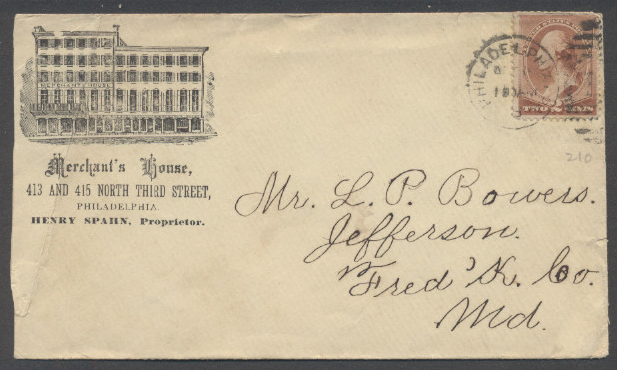 MERCHANTS HOUSE
Merchant's House,
413 AND 415 NORTH THIRD STREET,
PHILADELPHIA.
HENRY SPAHN, Proprietor.
PHILADELPHI
TWO CENTS
210
Mr. L. P. Bowers.
Jefferson.
Fred'K. Co.
Md.